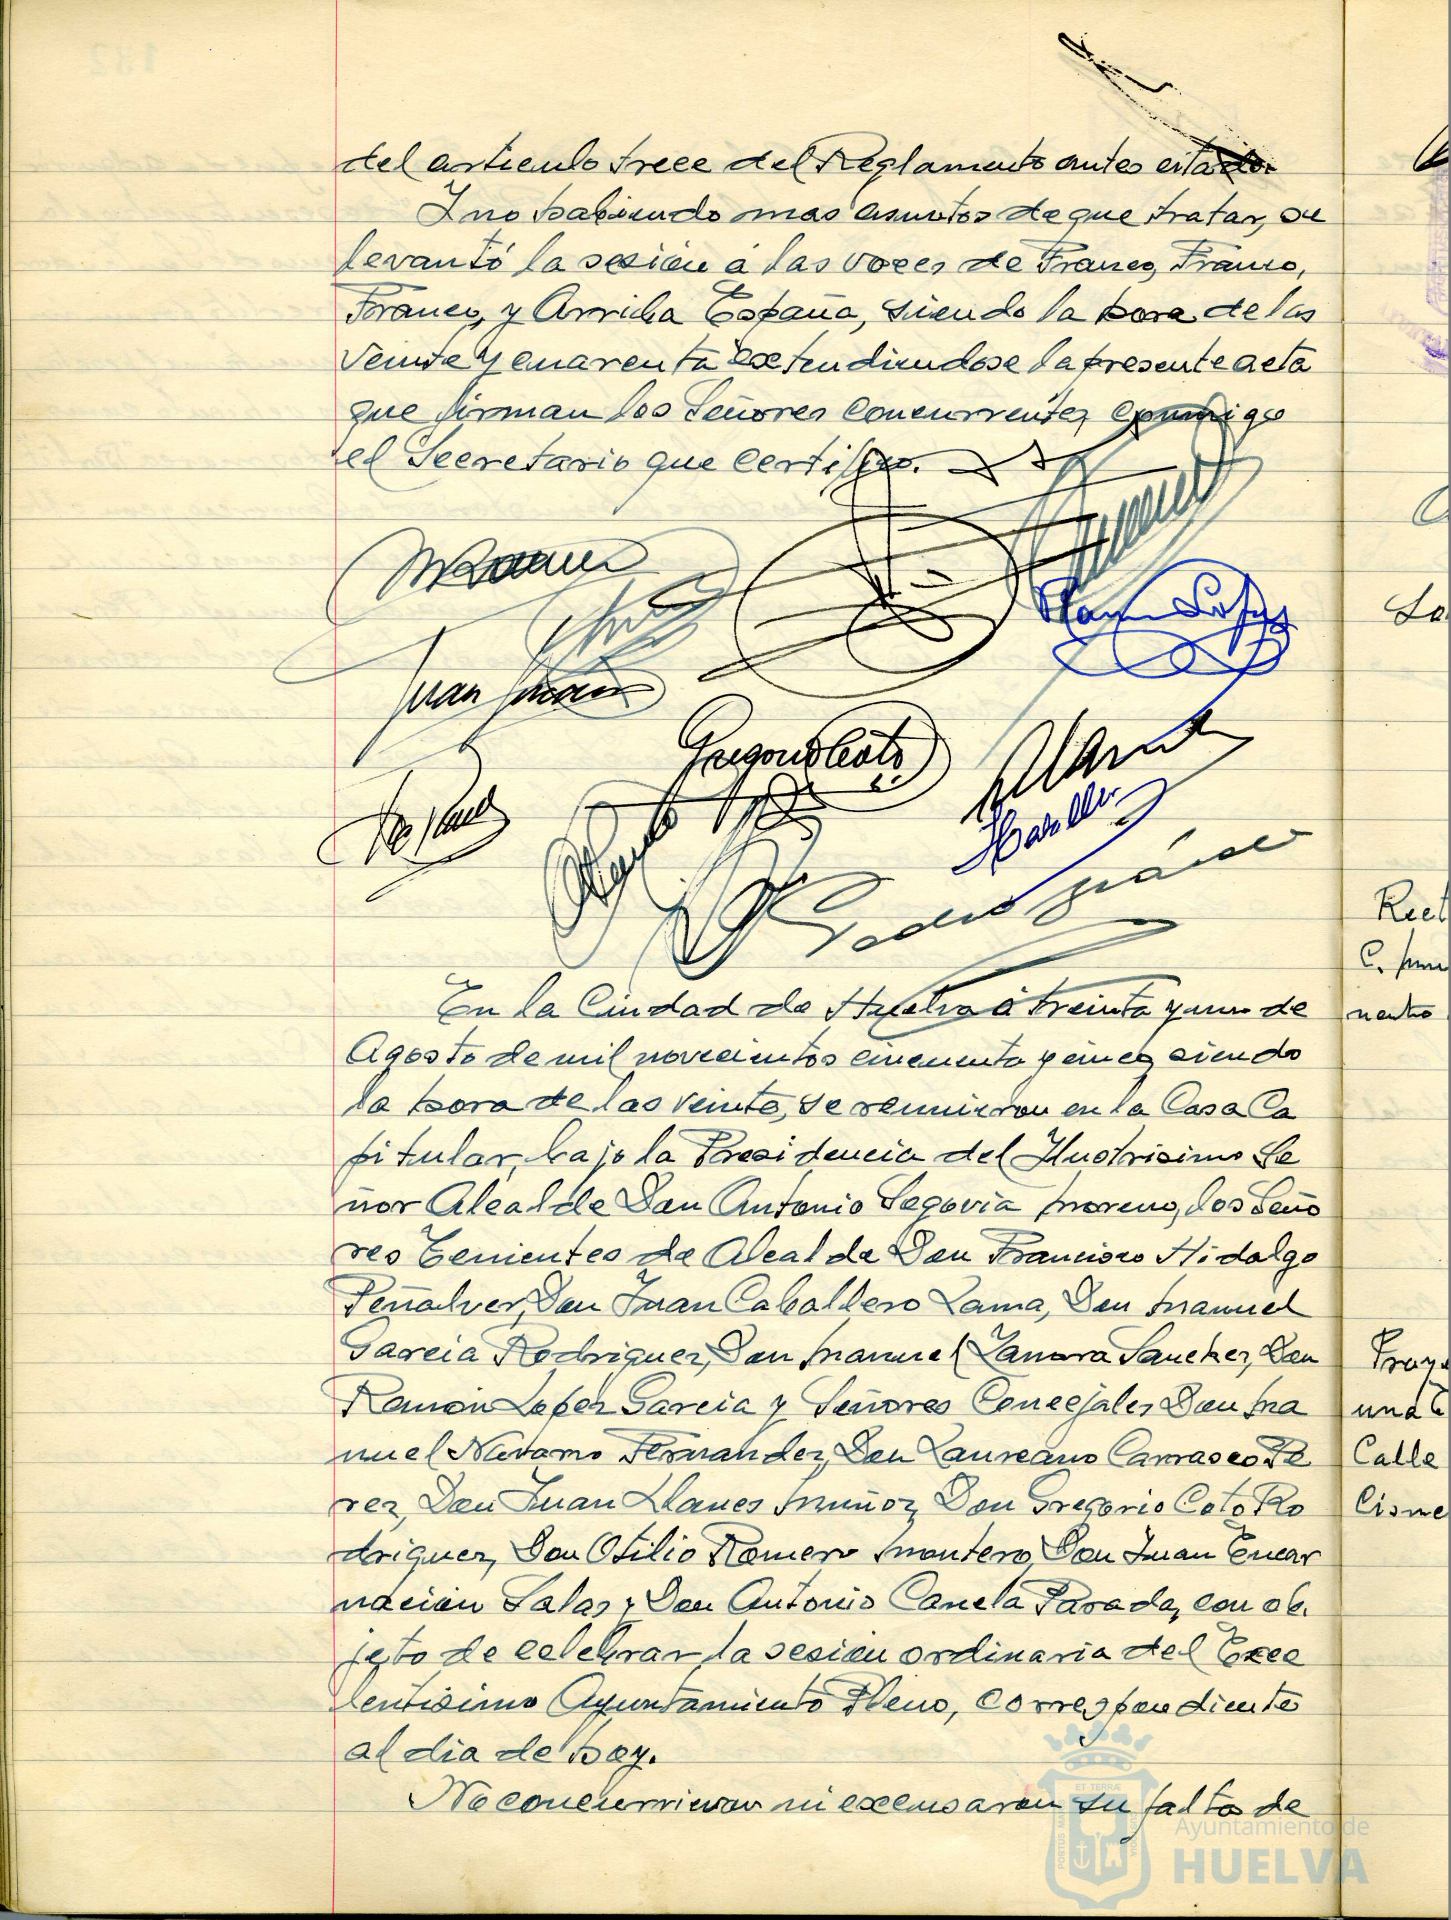 del articulo trece del Reglamento antes citado.
Y no habiendo mas asuntos de que tratar, se
levantó la sesión á las voces de Franco, Franco,
Franco, y Arriba España, siendo la hora de las
veinte y cuarenta extendiendose la presente acta
que firman los Señores concurrentes, conmigo
el Secretario que certifico.
Ramon Lopez
Juan
Gregorio Coto
Pedro
En la Ciudad de Huelva á treinta y uno de
Agosto de mil novecientos cincuenta y cinco, siendo
la hora de las veinte, se reunieron en la Casa Ca
pitular, bajo la Presidencia del Ilustrisimo Se
ñor Alcalde Don Antonio Segovia Moreno, los Seño
res Tenientes de Alcalde Don Francisco Hidalgo
Peñalver, Don Juan Caballero Lama, Don Manuel
Garcia Rodriguez, Don Manuel Zamora Sanchez, Don
Ramón Lopez Garcia y Señores Concejales Don Ma
nuel Navarro Fernandez, Don Laureano Carrasco Pe
rez, Don Juan Llanes Muñoz, Don Gregorio Coto Ro
driguez, Don Otilio Romero Montero, Don Juan Encar
nacion Salas y Don Antonio Canela Parada, con ob
jeto de celebrar la sesión ordinaria del Exce
lentisimo Ayuntamiento Pleno, correspondiente
al dia de hoy.
No concurrieron ni excusaron su falta de
Rect
C. mu
nento
Proye
una C
Calle
Cisne
Ayuntamiento de
HUELVA